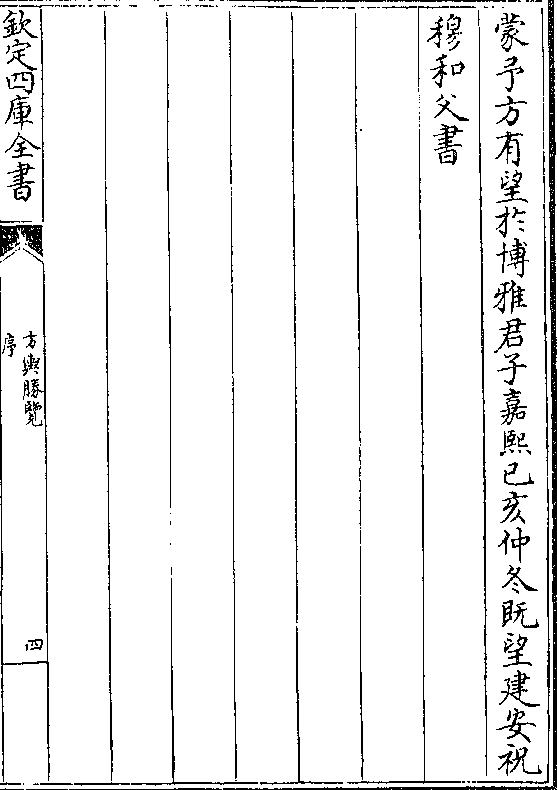 蒙予方有望於博雅君子嘉熙己亥仲冬既望建安祝
穆和父書
欽定四庫全書
方輿勝覽
序
四